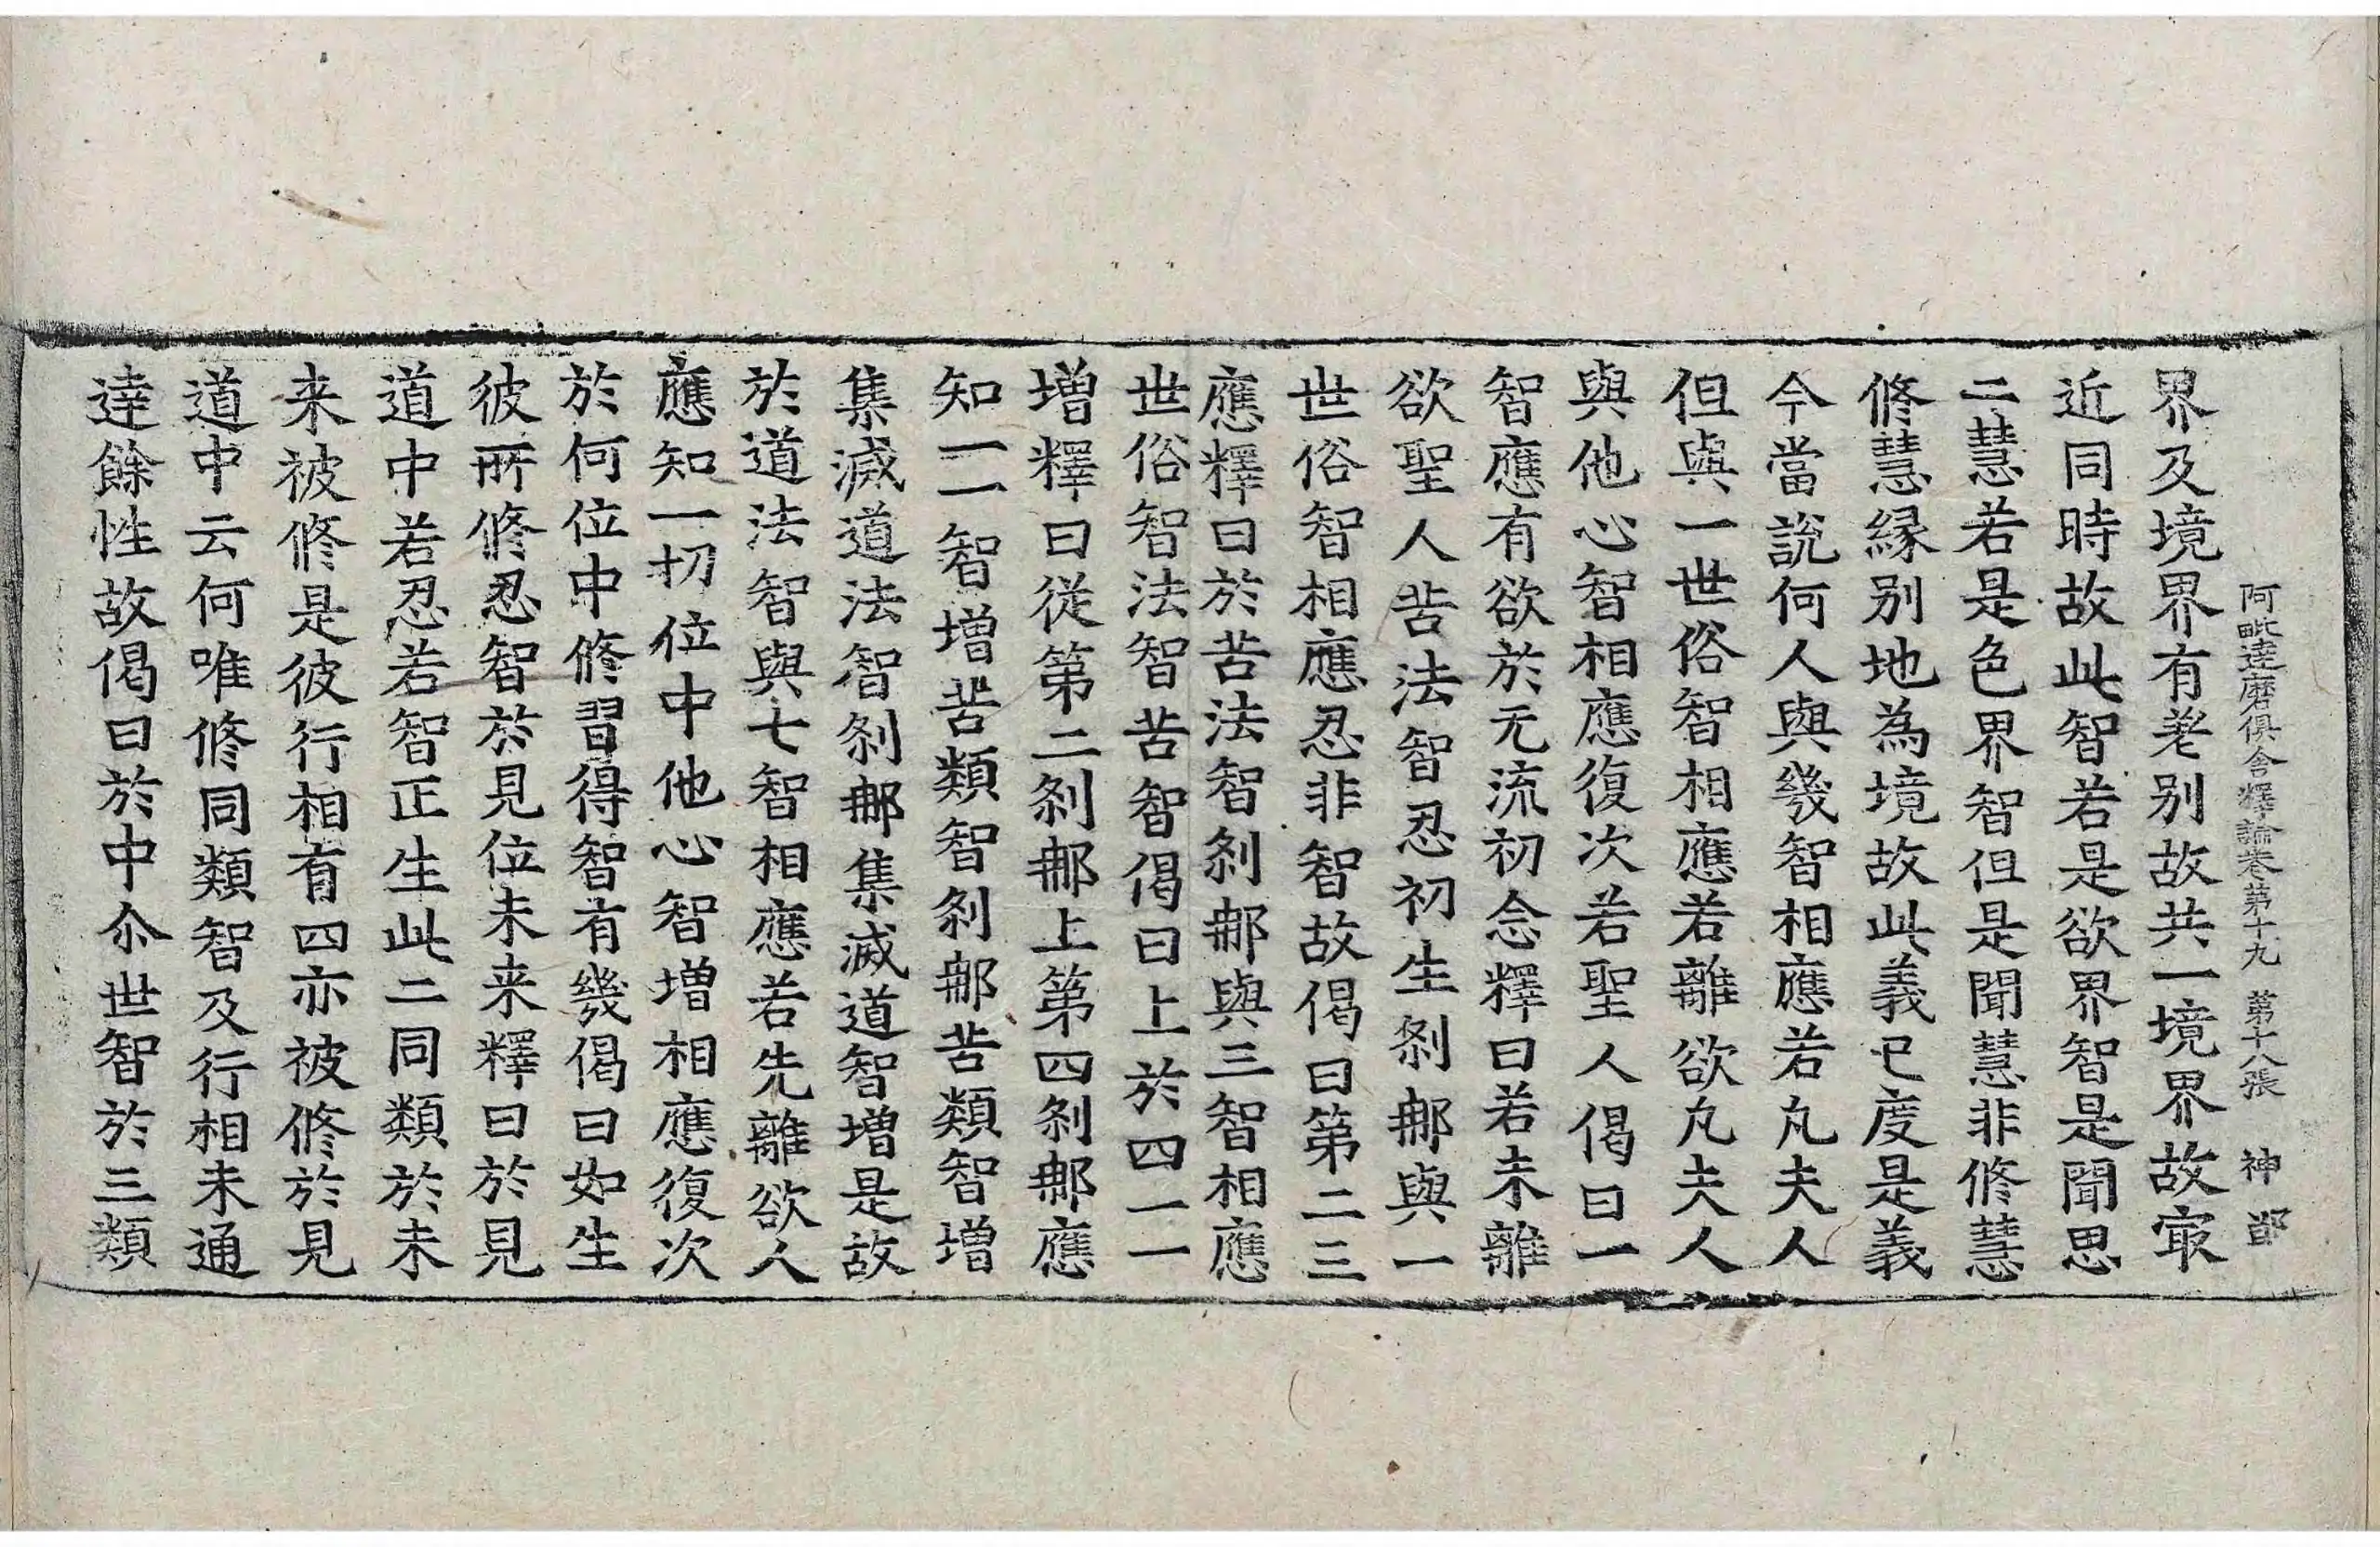 阿毗達磨俱舍釋論卷第十九 第十八張 神
界及境界有差別故共一境界故㝡
近同時故此智若是欲界智是聞思
二慧若是色界智但是聞慧非修慧
修慧緣別地為境故此義已度是義
今當說何人與幾智相應若凡夫人
但與一世俗智相應若離欲凡夫人
與他心智相應復次若聖人偈曰一
智應有欲於无流初念釋曰若未離
欲聖人苦法智忍初生剎那與一
世俗智相應忍非智故偈曰第二三
應釋曰於苦法智剎那與三智相應
世俗智法智苦智偈曰上於四一一
增釋曰從第二剎那上第四剎那應
知一一智增苦類智剎那苦類智增
集滅道法智剎那集滅道智增是故
於道法智與七智相應若先離欲人
應知一切位中他心智增相應復次
於何位中修習得智有幾偈曰如生
彼所修忍智於見位未来釋曰於見
道中若忍若智正生此二同類於未
来被修是彼行相有四亦被修於見
道中云何唯修同類智及行相未通
達餘性故偈曰於中尒世智於三類